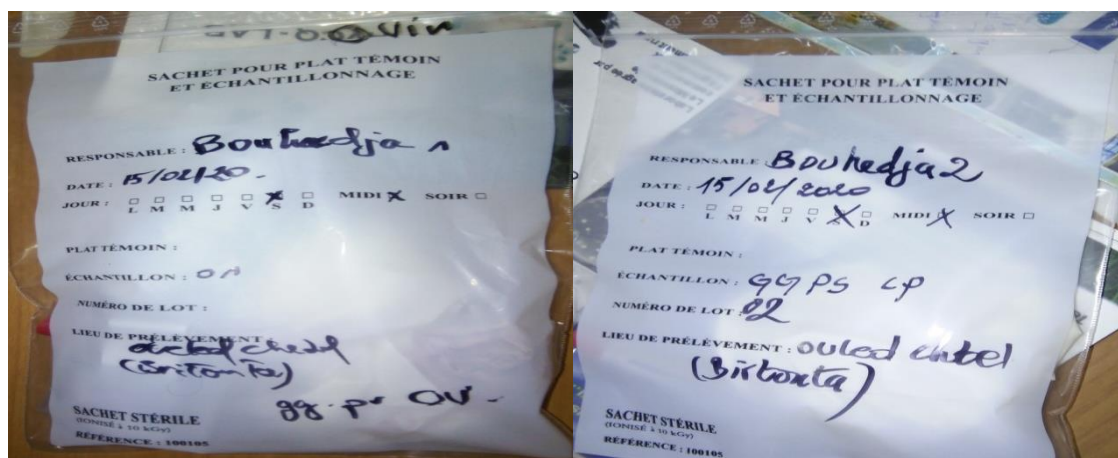 Ovin
SACHET POUR PLAT TÉMOIN
ET ÉCHANTILLONNAGE
RESPONSABLE : Bouhedja 1
DATE : 15/02/20.
JOUR : L M M J V S D MIDI X SOIR
PLAT TÉMOIN :
ÉCHANTILLON : 01
NUMÉRO DE LOT :
LIEU DE PRÉLÈVEMENT :
ouled chebel
(Birtouta)
gg. pr OV.
SACHET STÉRILE
(IONISÉ à 10 kGy)
RÉFÉRENCE : 100105
agrée par
SACHET POUR PLAT TÉMOIN
ET ÉCHANTILLONNAGE
RESPONSABLE : Bouhedja 2
DATE : 15/02/2020
JOUR : L M M J V S D MIDI X SOIR
PLAT TÉMOIN :
ÉCHANTILLON : GG PS CP
NUMÉRO DE LOT : 02
LIEU DE PRÉLÈVEMENT : Ouled chebel
(Birtouta)
SACHET STÉRILE
(IONISÉ à 10 kGy)
RÉFÉRENCE : 100105